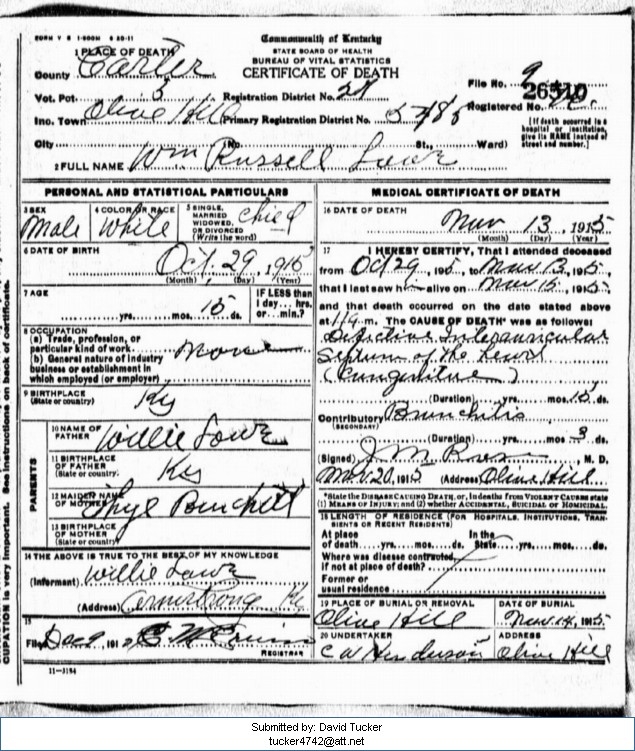 FORM V S 1-500M 8 20-11
Commonwealth of Kentucky
STATE BOARD OF HEALTH
BUREAU OF VITAL STATISTICS
CERTIFICATE OF DEATH
1 PLACE OF DEATH
County Carter
File No. 9
26510
Vot. Pct. 5 Registration District No. 28
Registered No.
Inc. Town Olive Hill Primary Registration District No.
[If death occurred in a hospital or institution, give its NAME instead of street and number.]
City (No. St., Ward)
2 FULL NAME Wm Russell Lowe
PERSONAL AND STATISTICAL PARTICULARS
3 SEX
Male
4 COLOR OR RACE
White
5 SINGLE, MARRIED WIDOWED, OR DIVORCED (Write the word)
child
6 DATE OF BIRTH
Oct, 29, 1915
(Month) (Day) (Year)
7 AGE
yrs. mos. 15 ds.
IF LESS than 1 day... hrs. or... min.?
8 OCCUPATION
(a) Trade, profession, or
particular kind of work None
(b) General nature of industry
business or establishment in
which employed (or employer)
9 BIRTHPLACE
(State or country) Ky
PARENTS
10 NAME OF
FATHER Willie Lowe
11 BIRTHPLACE
OF FATHER
(State or country) Ky
12 MAIDEN NAME
OF MOTHER
13 BIRTHPLACE
OF MOTHER
(State or country)
14 THE ABOVE IS TRUE TO THE BEST OF MY KNOWLEDGE
(Informant) Willie Lowe
(Address) Armstrong Ky
15
Filed Dec 9, 191
REGISTRAR
11-3184
MEDICAL CERTIFICATE OF DEATH
16 DATE OF DEATH
Nov 13, 1915
(Month) (Day) (Year)
17 I HEREBY CERTIFY, That I attended deceased
from Oct 29, 1915, to Nov 13, 1915,
that I last saw h alive on Nov 15, 1915,
and that death occurred on the date stated above
at m. The CAUSE OF DEATH* was as follows:
Defective Interauricular
Septum of the heart
(Congenital)
(Duration) yrs. mos. 15 ds.
Contributory Bronchitis
(SECONDARY)
(Duration) yrs. mos. 3 ds.
(Signed) J. M. Rose, M. D.
Nov. 20, 1915 (Address) Olive Hill
*State the DISEASE CAUSING DEATH, or, in deaths from VIOLENT CAUSES state
(1) MEANS OF INJURY; and (2) whether ACCIDENTAL, SUICIDAL or HOMICIDAL.
18 LENGTH OF RESIDENCE (FOR HOSPITALS, INSTITUTIONS, TRANSIENTS OR RECENT RESIDENTS)
At place In the
of death yrs. mos. ds. State yrs. mos. ds.
Where was disease contracted,
if not at place of death?
Former or
usual residence
19 PLACE OF BURIAL OR REMOVAL
Olive Hill
DATE OF BURIAL
Nov. 14, 1915
20 UNDERTAKER
C W Henderson
ADDRESS
Olive Hill
CUPATION is very important. See instructions on back of certificate.
Submitted by: David Tucker
tucker4742@att.net